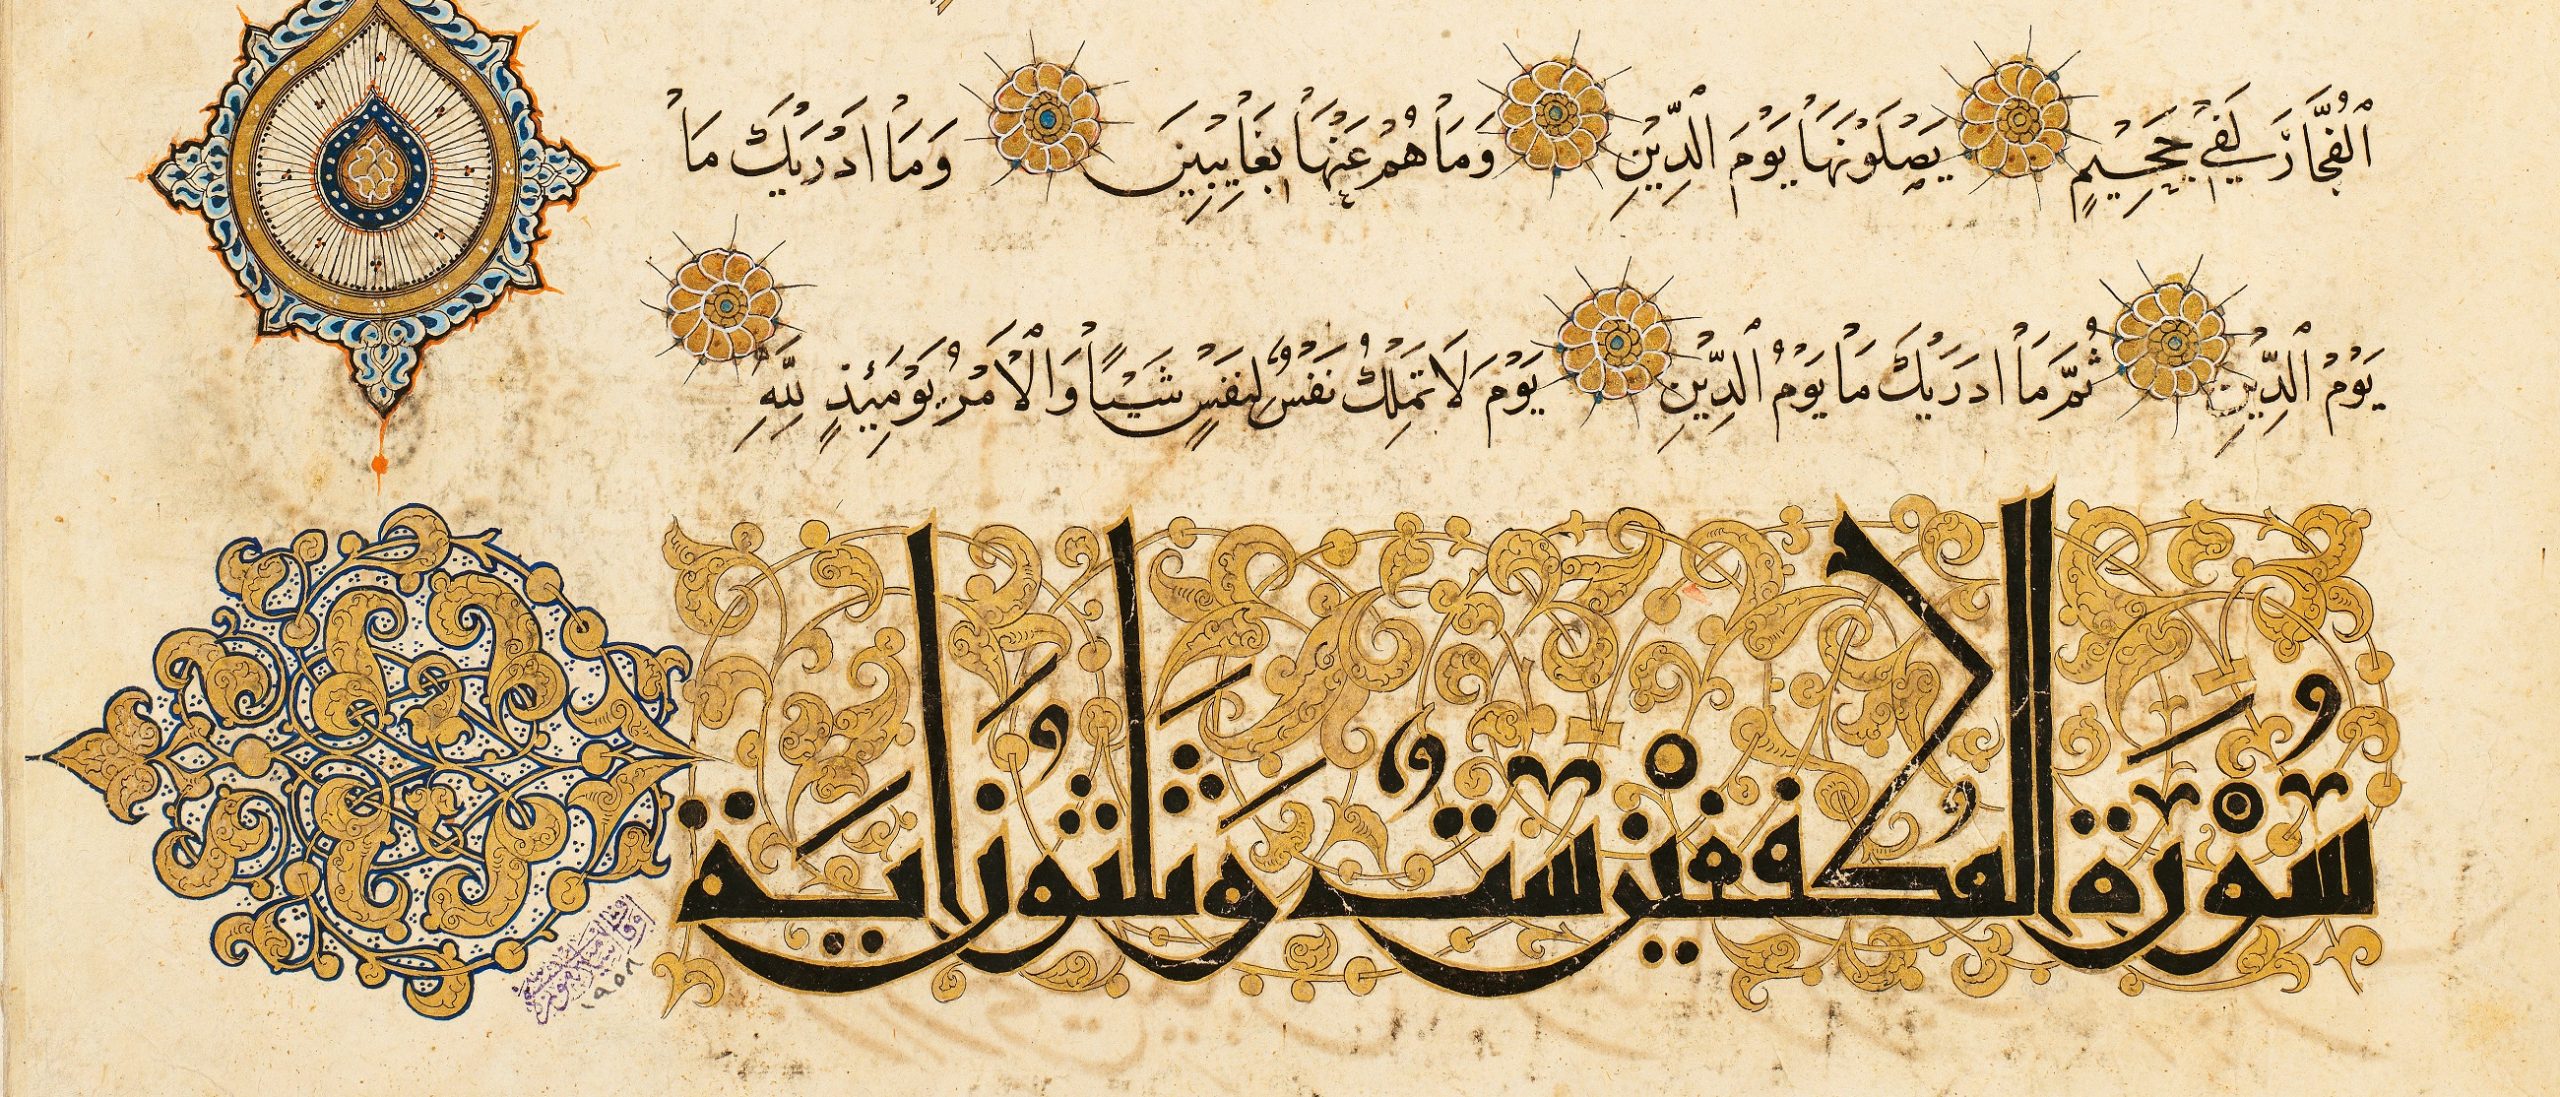 ٱلْفُجَّارَ لَفِي جَحِيمٍ يَصْلَوْنَهَا يَوْمَ ٱلدِّينِ وَمَا هُمْ عَنْهَا بِغَآيِبِينَ وَمَآ ادْرَيٰكَ مَا
يَوْمُ ٱلدِّينِ ثُمَّ مَآ ادْرَيٰكَ مَا يَوْمُ ٱلدِّينِ يَوْمَ لَا تَمْلِكُ نَفْسٌ لِنَفْسٍ شَيْـًٔا وَٱلْامْرُ يَوْمَئِذٍ لِلَّهِ
سُوْرَةُ المُطَففِيْنَ سِتٌّ وَثَلَثُونَ ايَةً
١٩٥٨